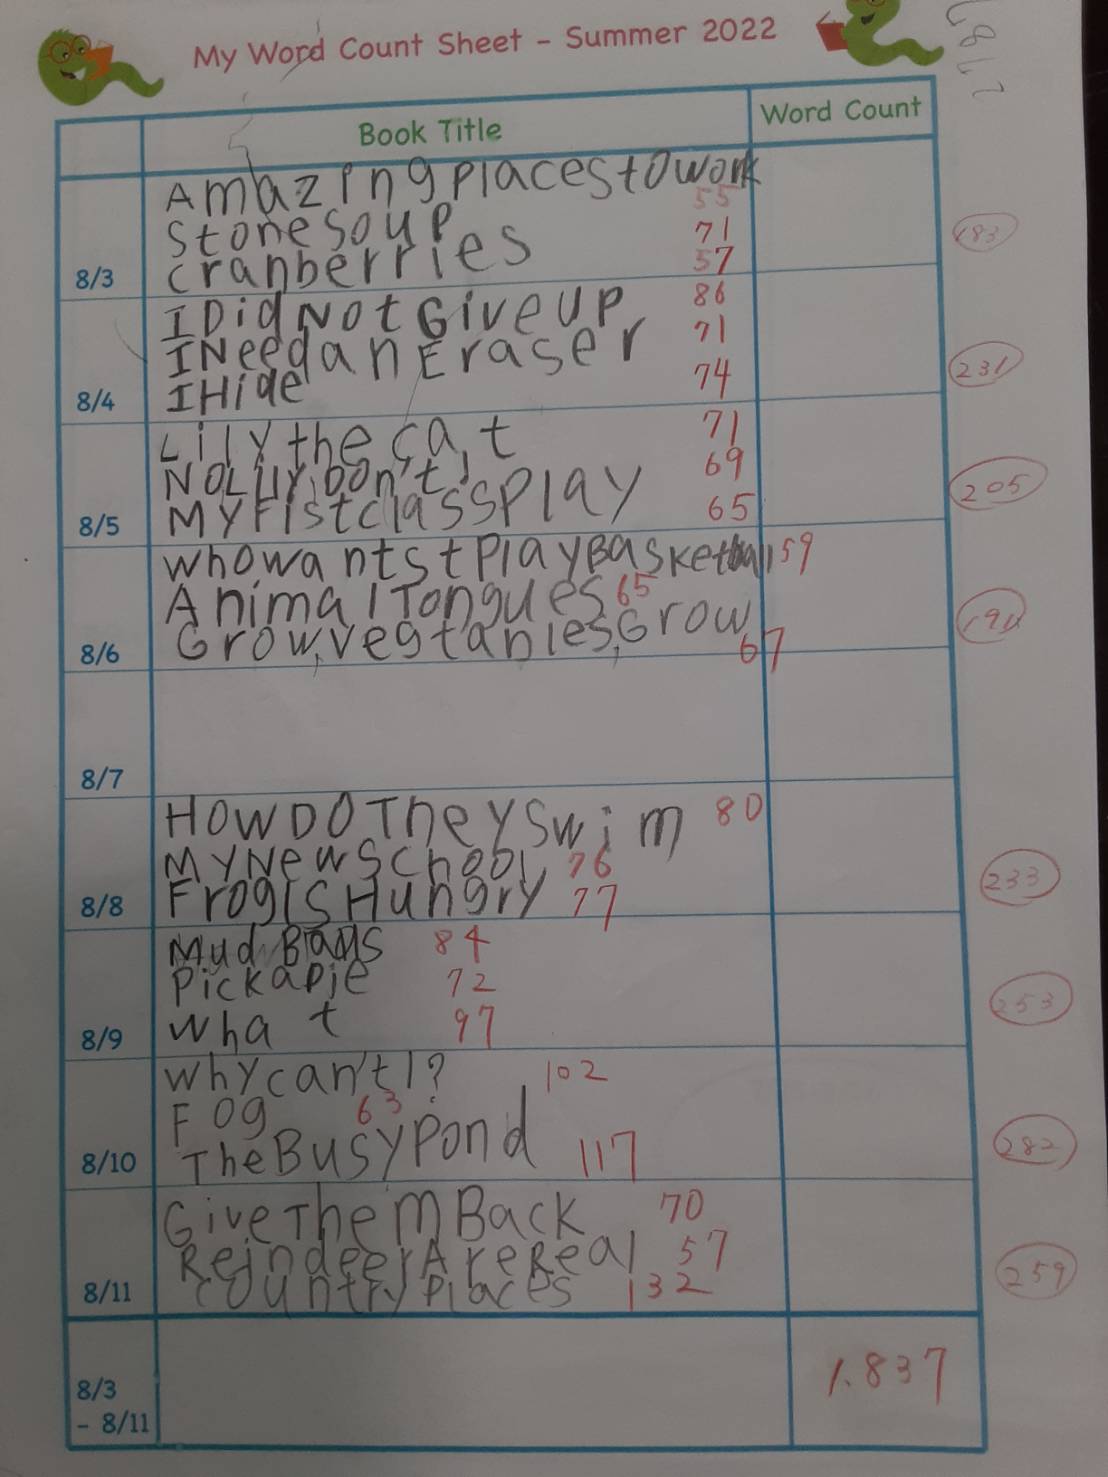 My Word Count Sheet - Summer 2022
Book Title Word Count
Amazing places to work 55
Stone soup 71
8/3 cranberries 57 183
I Did Not Give up 86
I Need an Eraser 71
8/4 I Hide 74 231
Lily the cat 71
No Lily, Don't! 69
8/5 My Fist class Play 65 205
who wants t Play Basketball 59
Animal Tongues 65
8/6 Grow, vegtables, Grow 67 191
8/7
How Do They Swim 80
My New School 76
8/8 Frog is Hungry 77 233
Mud Balls 84
Pick a Pie 72
8/9 what 97 253
why can't I? 102
Fog 63
8/10 The Busy Pond 117 282
Give Them Back 70
Reindeer Are Real 57
8/11 country Places 132 259
8/3
- 8/11 1.837